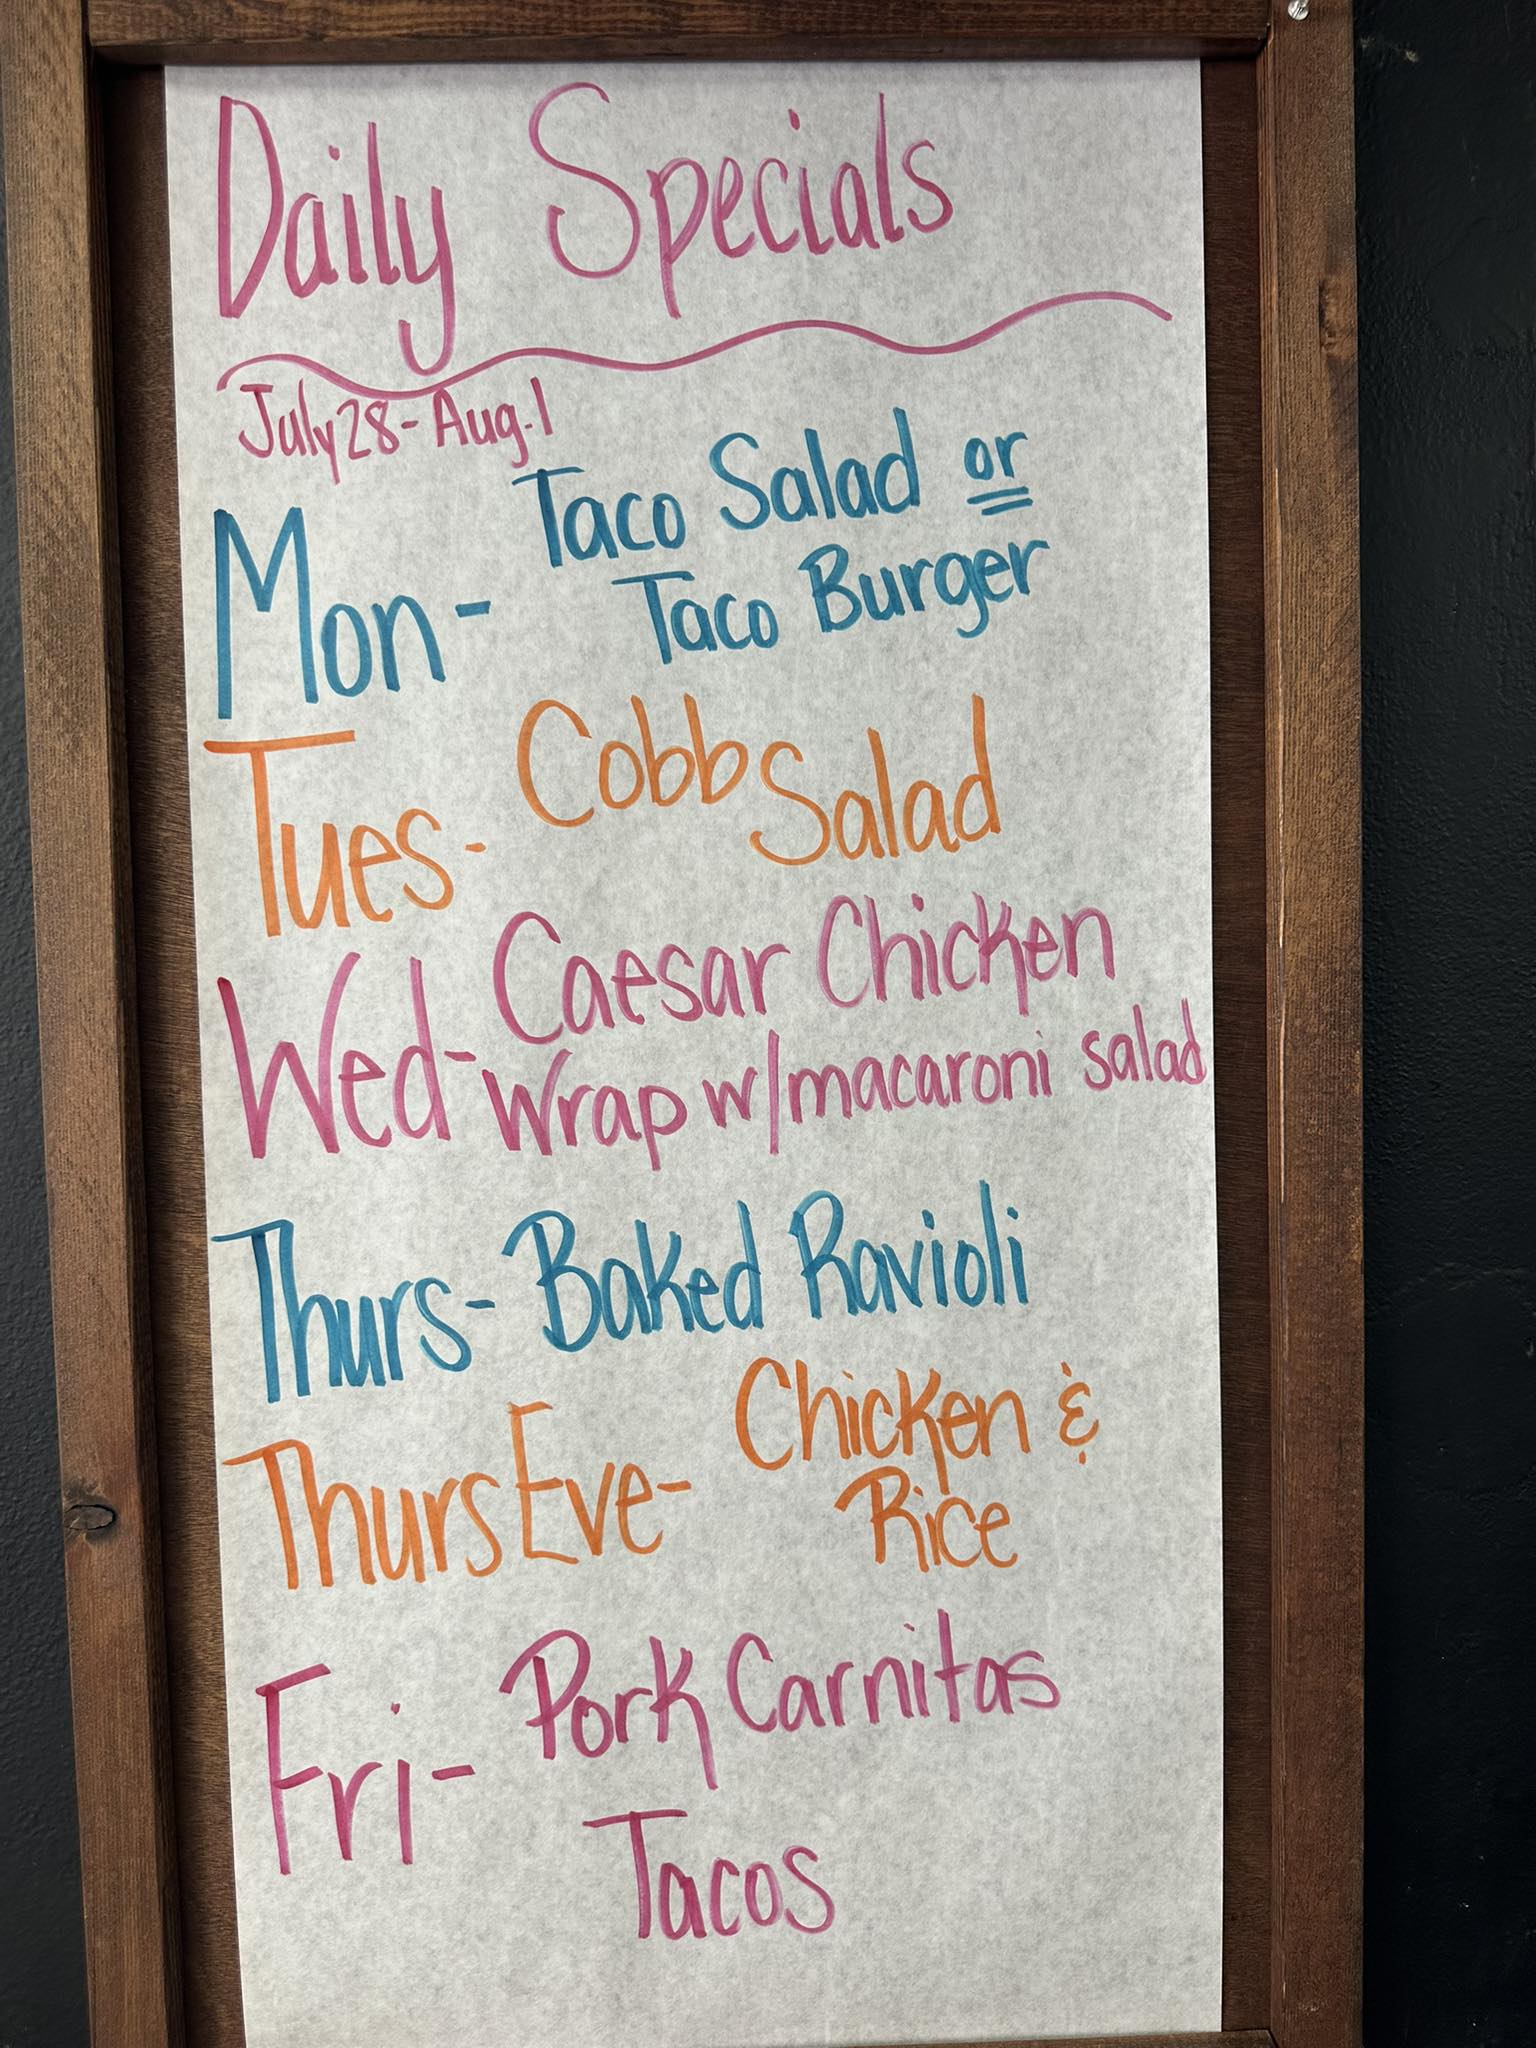 Daily Specials
July 28-Aug. 1
Mon- Taco Salad or
Taco Burger
Tues- Cobb Salad
Wed- Caesar Chicken
Wrap w/macaroni salad
Thurs- Baked Ravioli
Thurs Eve- Chicken &
Rice
Fri- Pork Carnitas
Tacos